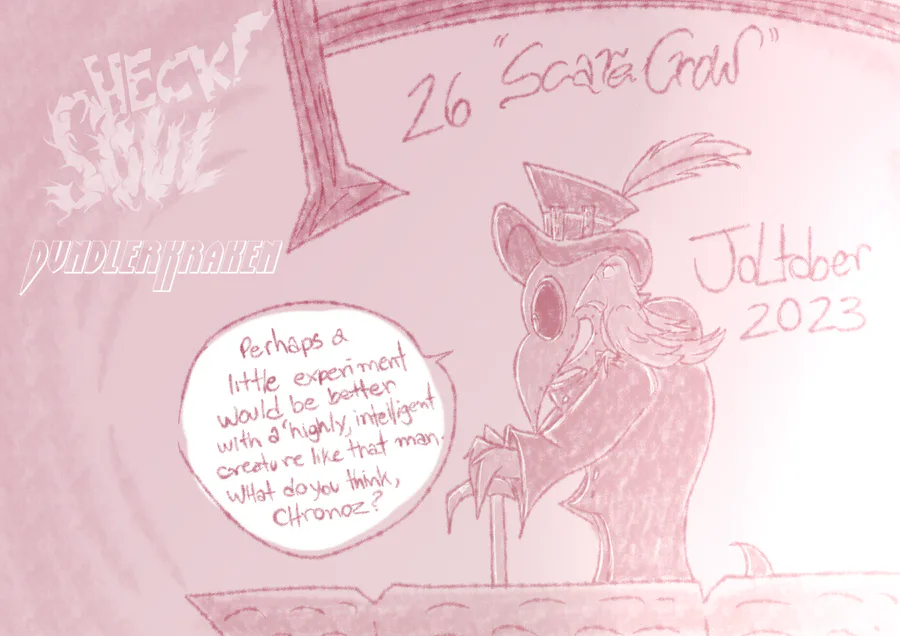 HECK!
SOUL
DUNDLERKRAKEN
26 "Scare Crow"
Joltober
2023
Perhaps a
little experiment
would be better
with a "highly, intelligent
creature like that man.
What do you think,
Chronoz?